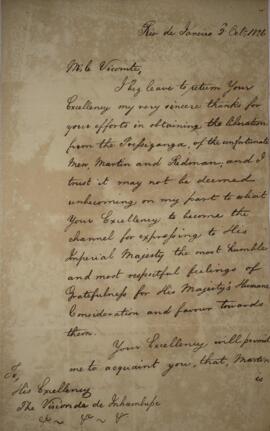 Rio de Janeiro 2 Oct. 1826
M. le Vicomte,
I beg leave to return Your
Excellency my very sincere thanks for
your efforts in obtaining the liberation
from the Presiganga, of the unfortunate
Men, Martin and Redman, and I
trust it may not be deemed
unbecoming on my part to solicit
Your Excellency to become the
channel for expressing to His
Imperial Majesty the most humble
and most respectful feelings of
Gratefulness for His Majesty's Humane
Consideration and favour towards
them.
Your Excellency will permit
me to acquaint you, that, Martin
is
To
His Excellency
The Visconde de Inhambupe